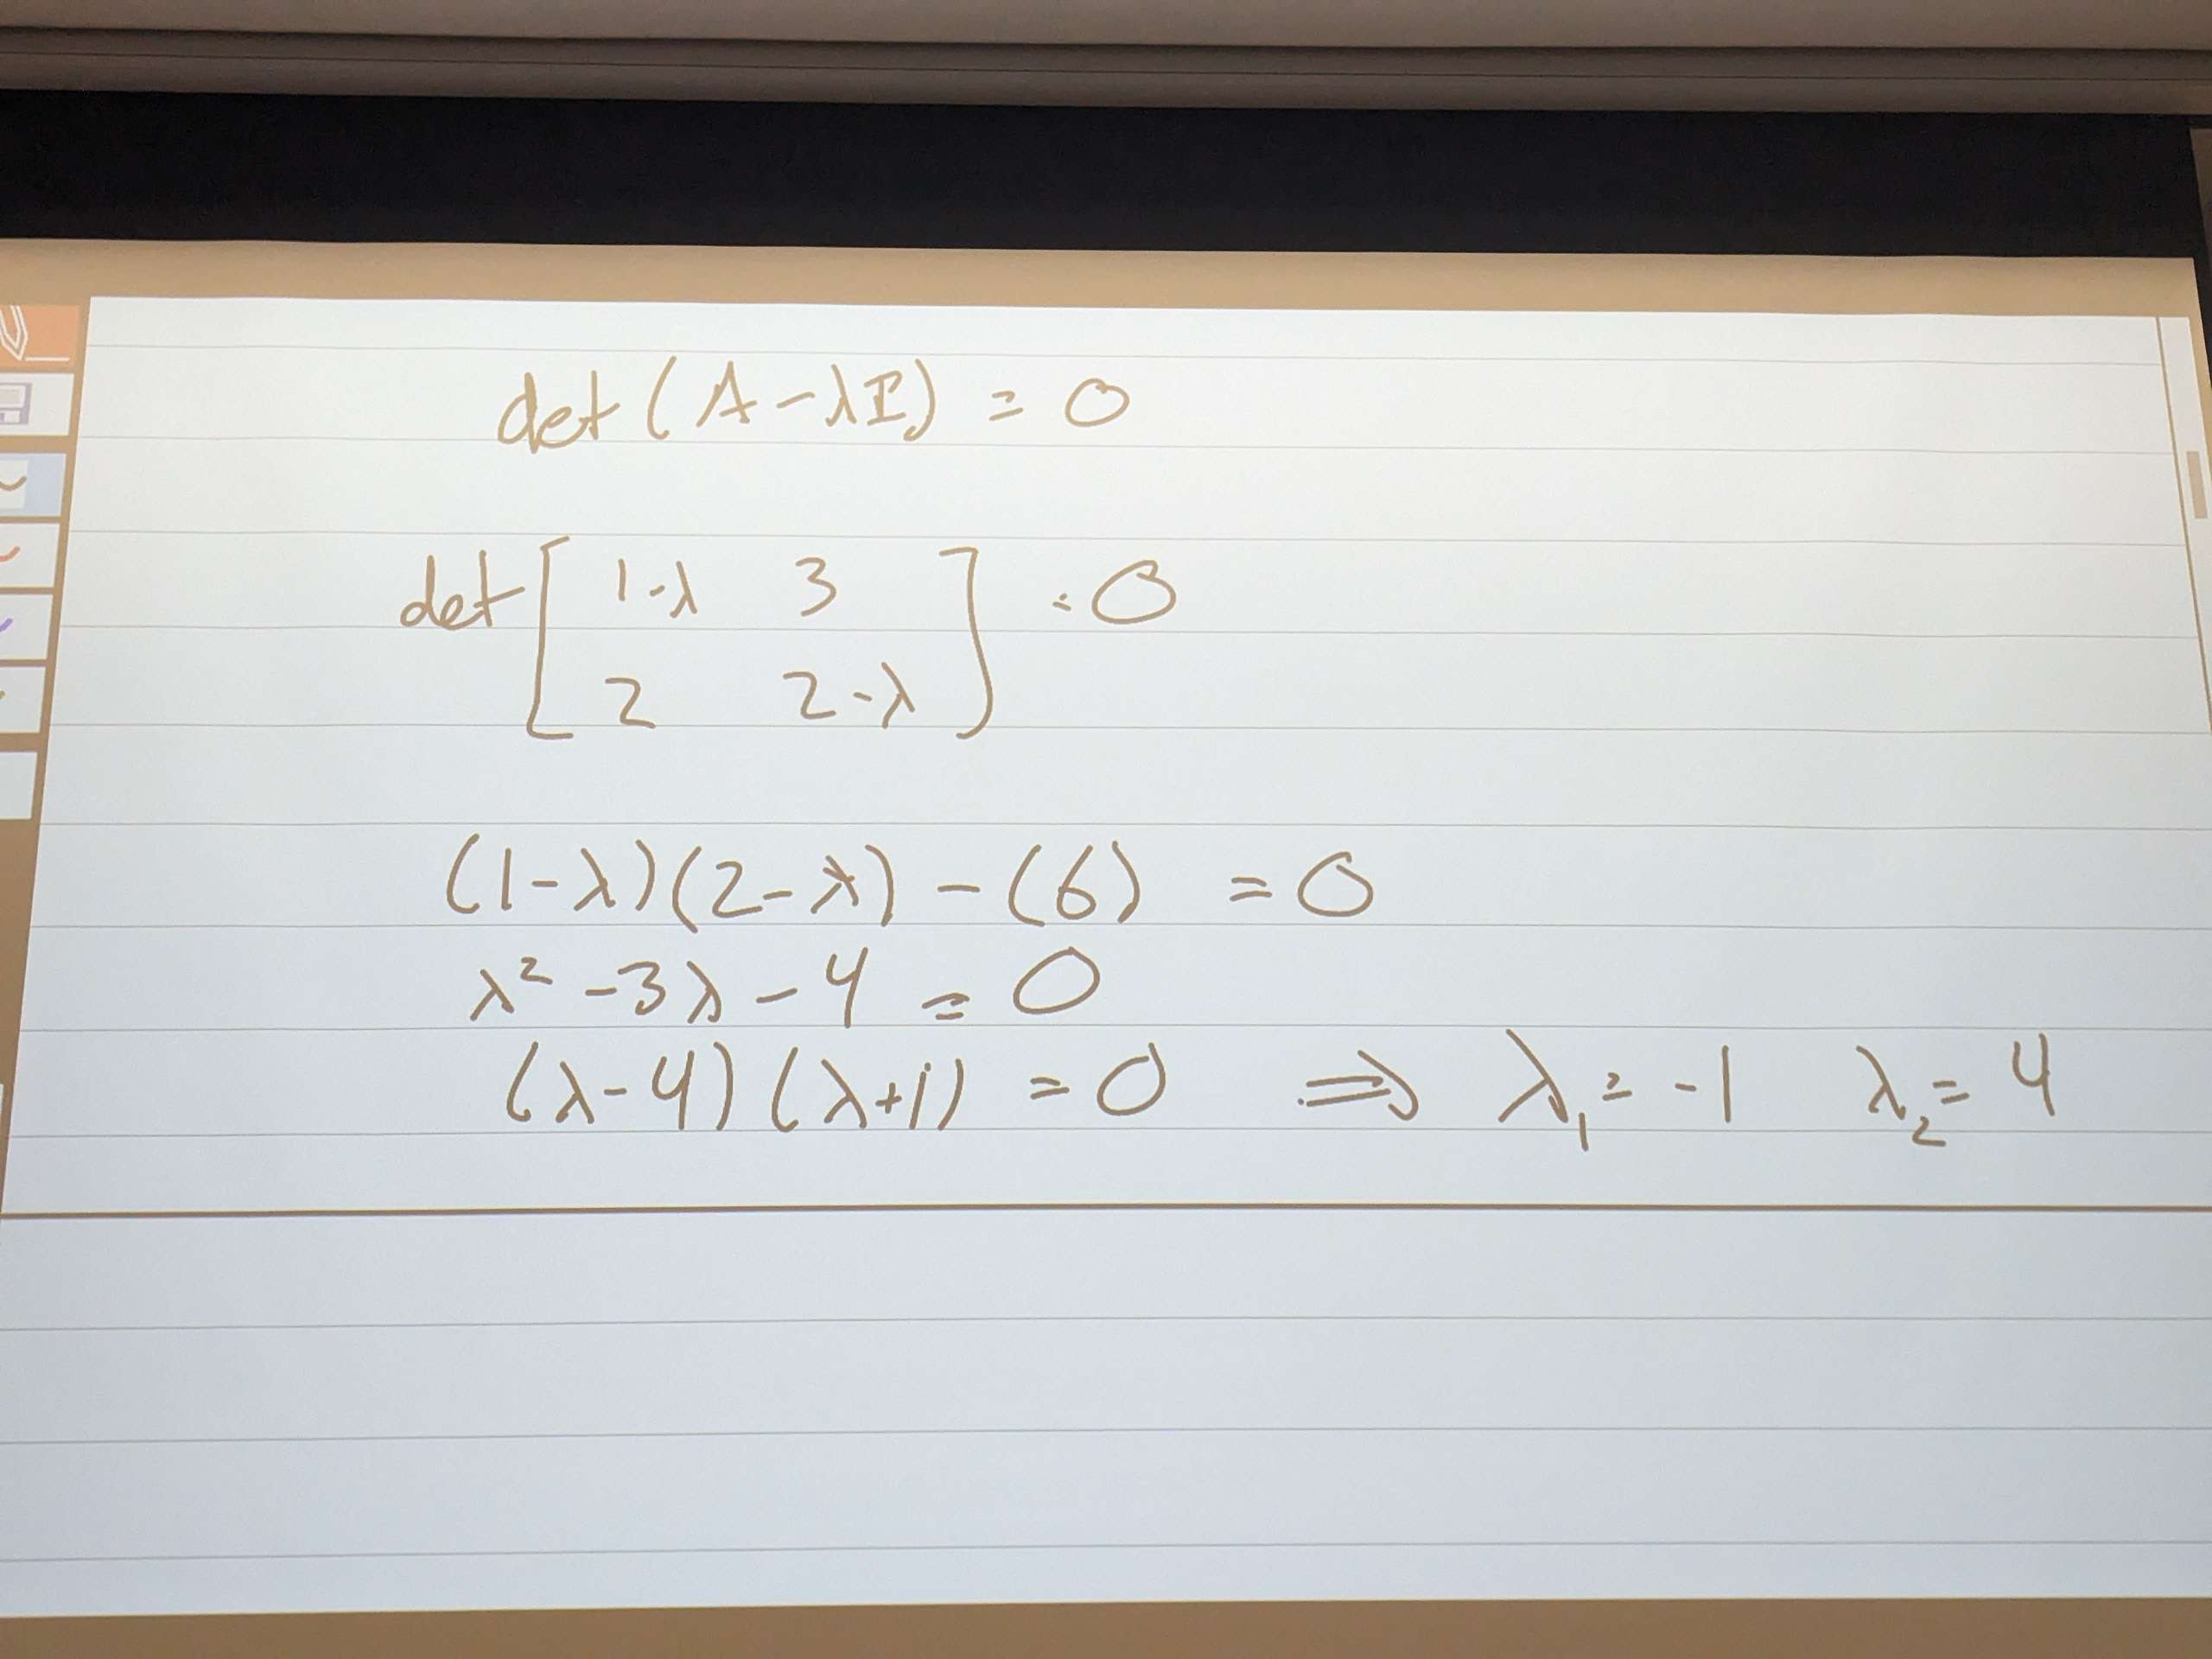 det (A - λI) = 0
det [ 1-λ 3
2 2-λ ] = 0
(1-λ)(2-λ) - (6) = 0
λ² - 3λ - 4 = 0
(λ-4)(λ+1) = 0 ⟹ λ₁ = -1 λ₂ = 4